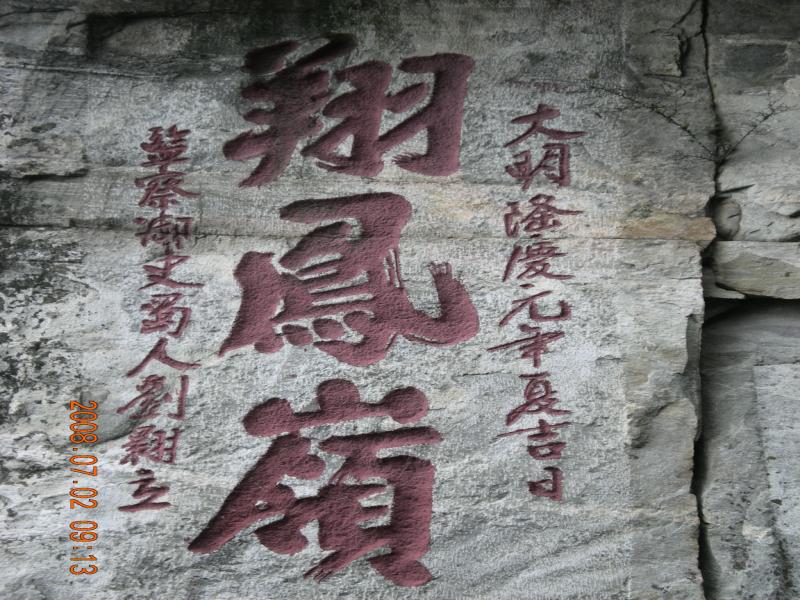 大明隆慶元年夏吉日
翔鳳嶺
監察御史蜀人劉翾立
2008.07.02 09:13